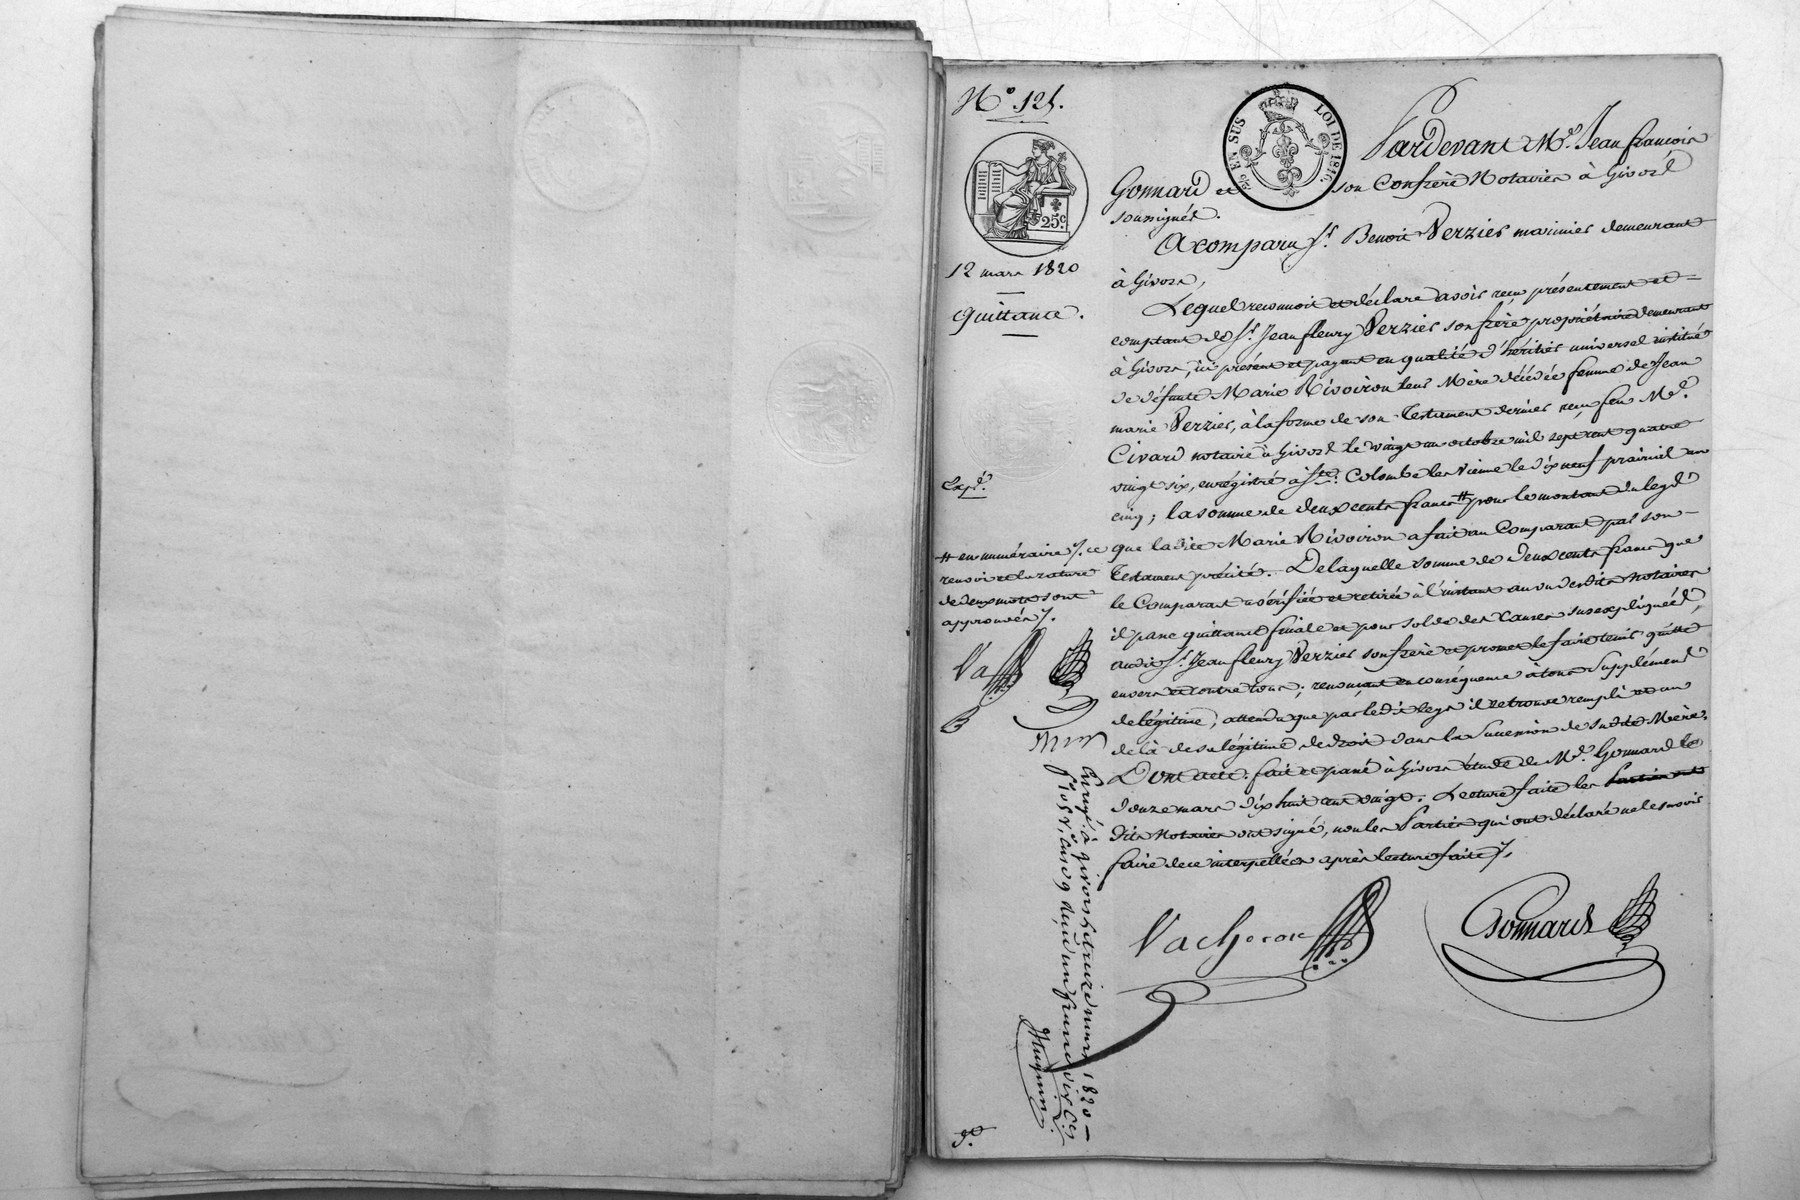 N.° 125.
25 EN SUS
LOI DE 1816.
25.c
12 mars 1820
quittance.
Pardevant M.e Jean françois
Gonnard et son Confrère Notaires à Givors
soussignés.
A comparu s.r Benoit Verzier marinier demeurant
à Givors,
Lequel reconnoit et déclare avoir reçu présentement et
comptant de S.r Jean fleury Verzier son frère propriétaire demeurant
à Givors, ici présent et payant en qualité d'héritier universel institué
de défunte Marie Rivoiron leur Mère décédée femme de Jean
marie Verzier, à la forme de son Testament dernier reçu feu M.e
Civard notaire à Givors le vingt un octobre mil sept cent quatre
vingt six, enrégistré à S.te Colombe les Vienne le dix neuf prairial an
cinq; la somme de deux cents francs # pour le montant du legs
que ladite Marie Rivoiron a fait au Comparant par son
Testament précité. De laquelle somme de deux cents francs que
le Comparant a vérifiée et retirée à l'instant au vu desdits Notaires
il passe quittance finale et pour solde des causes susexpliquées,
audit S.r Jean fleury Verzier son frère et promet le faire tenir quitte
envers et contre tous; renonçant en conséquence à tout supplément
de légitime, attendu que par ledit legs il se trouve rempli et au
de là de sa légitime de droit dans la succession de sadite Mère.
Dont acte. fait et passé à Givors étude de M.e Gonnard le
douze mars dix huit cent vingt. Lecture faite les
dits Notaires ont signé, non les Parties qui ont déclaré ne le savoir
faire de ce interpellées après lecture faite
Exp.é
# en numéraire ce
renvoi et la rature
de deux mots sont
approuvés
Va
Vacheron
Gonnard
Enreg.é à Givors le treize mars 1820
f.° 105 v.° Case 9 reçu un franc dix c.es
Huguin